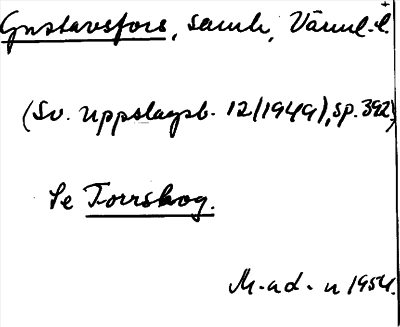 Gustavsfors, samh, Värml. l.
(Sv. uppslagsb. 12(1949), sp. 392)
Se Torrskog.
M.-ad. - n 1954.